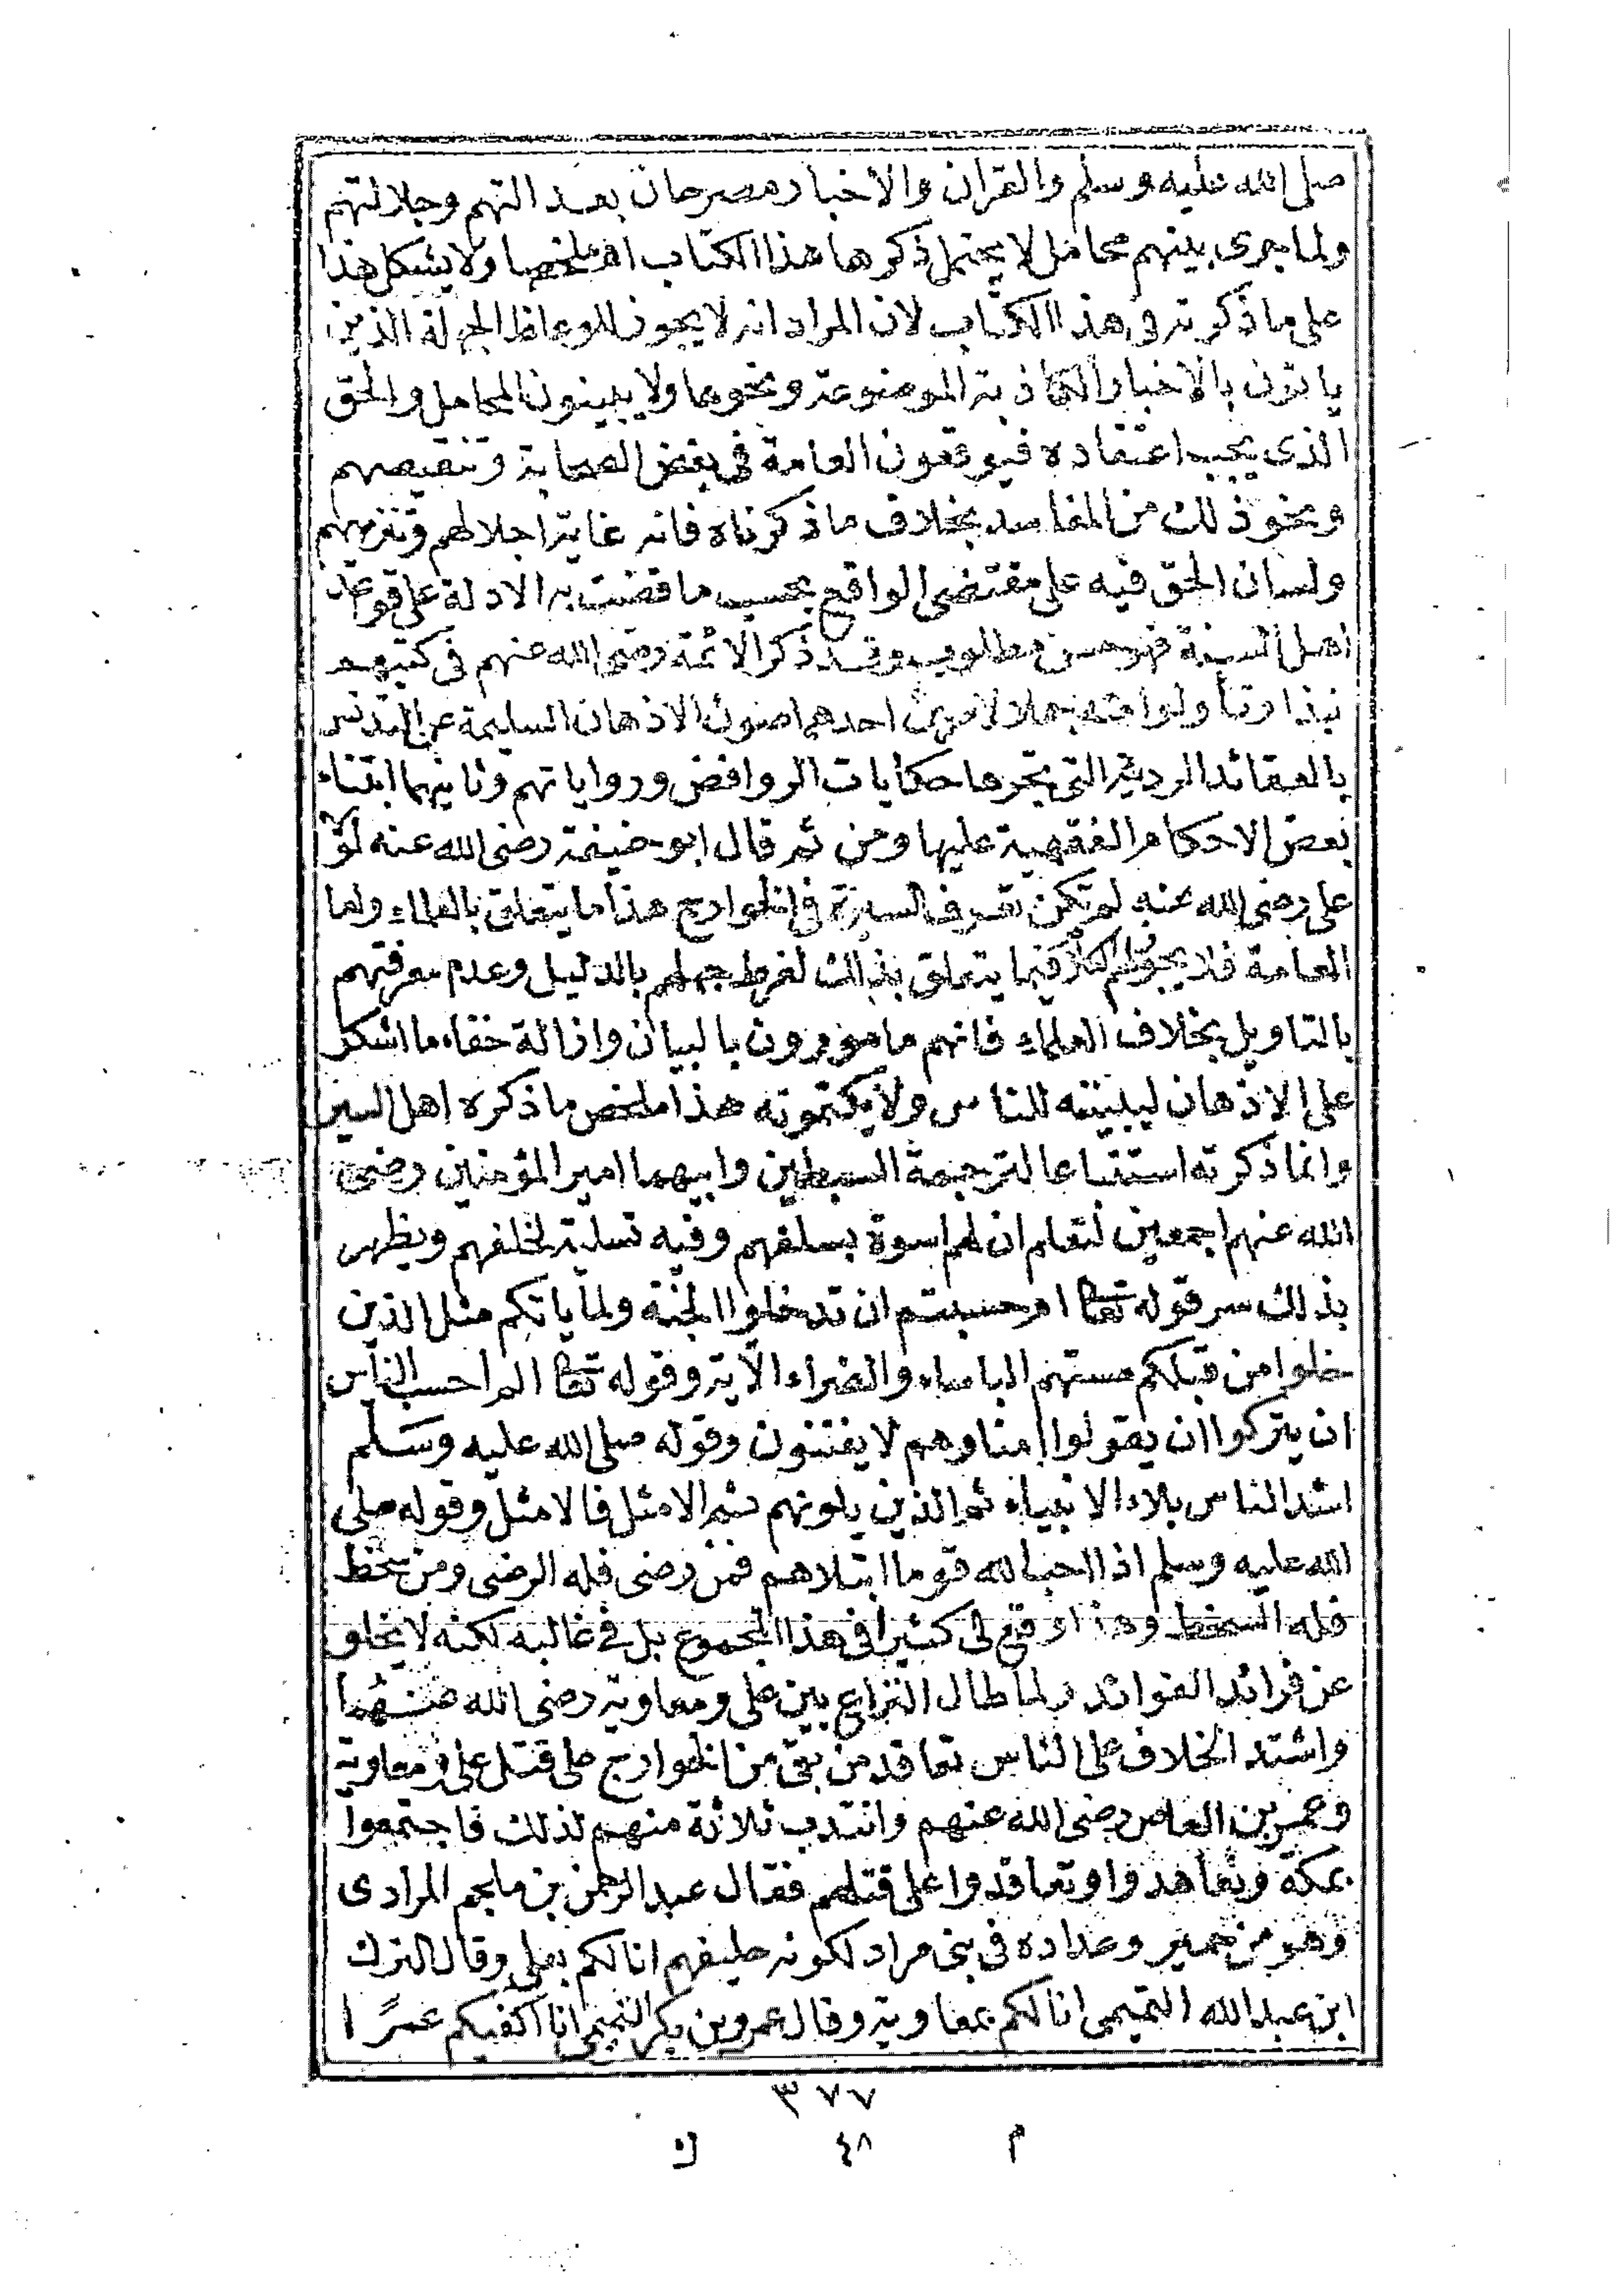 صلى الله عليه وسلم والقران والاخبار مصرحان بعدالتهم وجلالتهم
ولما جرى بينهم محامل لا يحتمل ذكرها هذا الكتاب اه ملخصا ولا يشكل هذا
على ما ذكرته فى هذا الكتاب لان المراد انه لا يجوز للوعاظ الجهلة الذين
ياتون بالاخبار الكاذبة الموضوعة ونحوها ولا يبينون المحامل والحق
الذى يجب اعتقاده فيوقعون العامة فى بغض الصحابة وتنقيصهم
ونحو ذلك من المفاسد بخلاف ما ذكرناه فانه غاية اجلالهم وتنزيههم
ولسان الحق فيه على مقتضى الواقع بحسب ما قضت به الادلة على قواعد
اهل السنة فهو حسن مطلوب وقد ذكر الائمة رضى الله عنهم فى كتبهم
نبذا وتأولوا منه جملا لامرين احدهما صون الاذهان السليمة عن التدنس
بالعقائد الرديئة التى تجرها حكايات الروافض ورواياتهم وثانيهما ابتناء
بعض الاحكام الفقهية عليها ومن ثم قال ابو حنيفة رضى الله عنه لولا
على رضى الله عنه لم تكن تعرف السيرة فى الخوارج هذا ما يتعلق بالعلماء واما
العامة فلا يجوز لهم الكلام فيما يتعلق بذلك لفرط جهلهم بالدليل وعدم معرفتهم
بالتاويل بخلاف العلماء فانهم مامورون بالبيان وازالة خفاء ما اشكل
على الاذهان ليبيننه للناس ولا يكتمونه هذا ملخص ما ذكره اهل السير
وانما ذكرته استتباعا لترجمة السبطين وابيهما امير المؤمنين رضى
الله عنهم اجمعين لتعلم ان لهم اسوة بسلفهم وفيه تسلية لخلفهم ويظهر
بذلك سر قوله تعا ام حسبتم ان تدخلوا الجنة ولما ياتكم مثل الذين
خلوا من قبلكم مستهم الباساء والضراء الآية وقوله تعا الم احسب الناس
ان يتركوا ان يقولوا امنا وهم لا يفتنون وقوله صلى الله عليه وسلم
اشد الناس بلاء الانبياء ثم الذين يلونهم ثم الامثل فالامثل وقوله صلى
الله عليه وسلم اذا احب الله قوما ابتلاهم فمن رضى فله الرضى ومن سخط
فله السخط وهذا وقع لى كثيرا فى هذا المجموع بل فى غالبه لكنه لا يخلو
عن فرائد الفوائد ولما طال النزاع بين على ومعاوية رضى الله عنهما
واشتد الخلاف على الناس تعاقد من بقى من الخوارج على قتل على ومعاوية
وعمرو بن العاص رضى الله عنهم وانتدب ثلاثة منهم لذلك فاجتمعوا
بمكة وتعاهدوا وتعاقدوا على قتلهم فقال عبد الرحمن بن ملجم المرادى
وهو من حمير وعداده فى بنى مراد لكونه حليفهم انا لكم بعلى وقال البرك
ابن عبد الله التميمى انا لكم بمعاوية وقال عمرو بن بكر التميمى انا اكفيكم عمرًا
٣٧٧
م ٤٨ ك